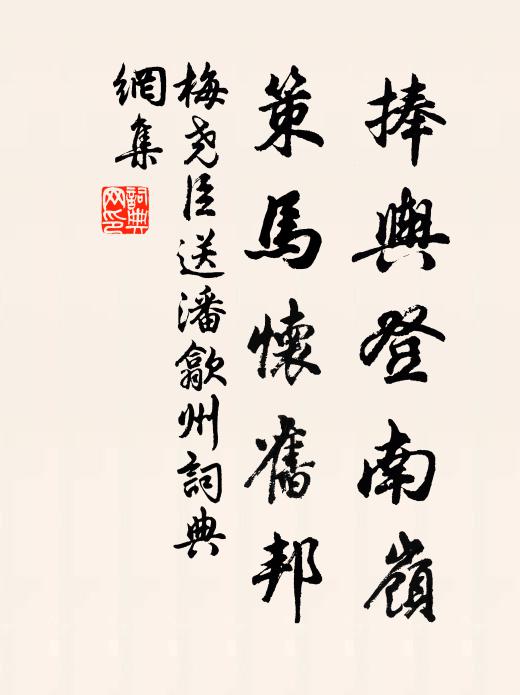 捧輿登南嶺
策馬懷舊邦
梅堯臣送潘歙州詞典
網集
詞典網印